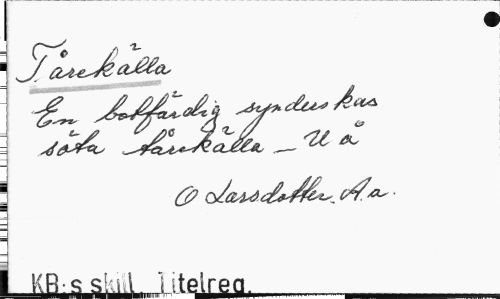 Tårekälla
En botfärdig synderskas
söta tårekälla _ U å
O Larsdotter. A.a.
KB:s skill. Titelreg.